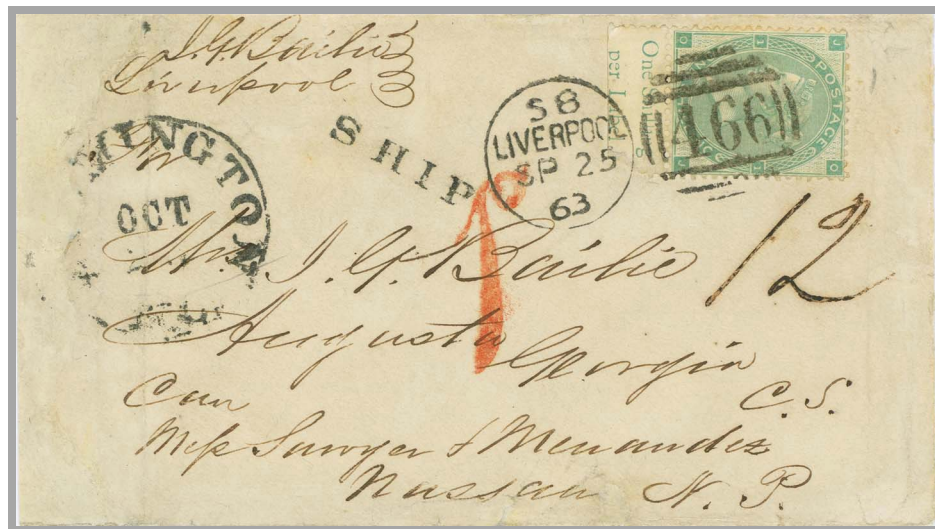 J. G. Bailie
Liverpool
MINGTON
OCT
SHIP
S8
LIVERPOOL
SP 25
63
466
POSTAGE
One
per
12
Mr. J. G. Bailie
Augusta
Georgia
C. S.
Care
Mess Sawyer & Menandez
Nassau N. P.